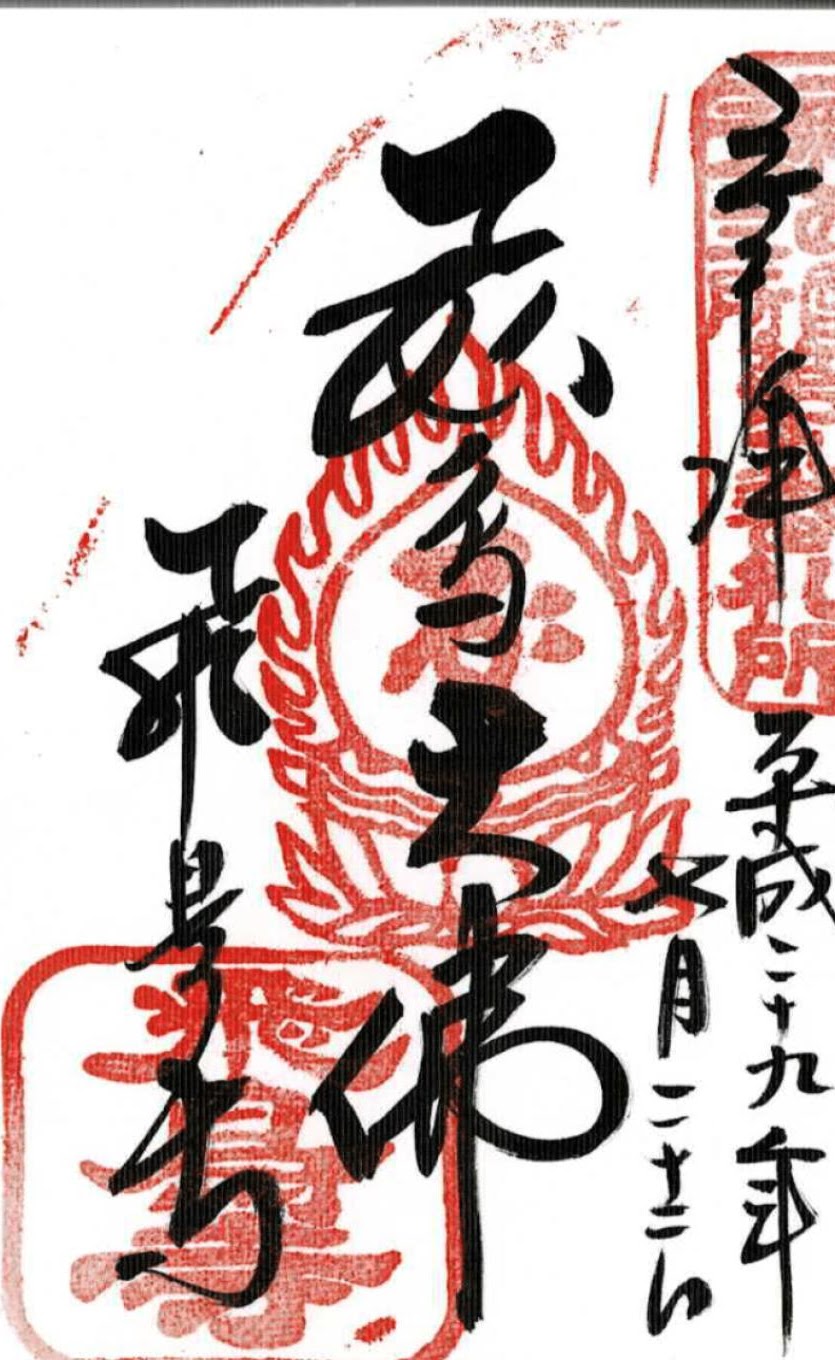 奉拝
平成二十九年
七月二十二日
飛鳥大佛
飛鳥寺
飛鳥寺